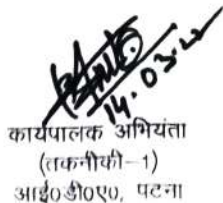 14.03.22
कार्यपालक अभियंता
(तकनीकी-1)
आई0डी0ए0, पटना